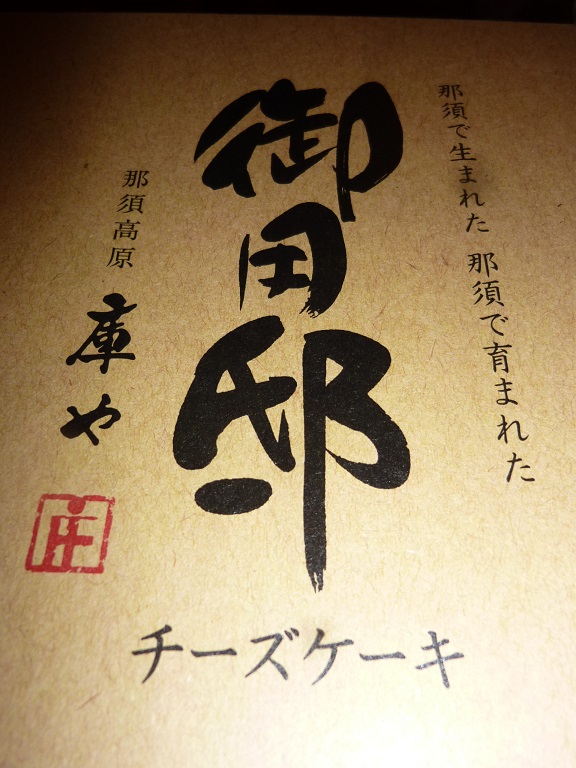 那須で生まれた 那須で育まれた
御用邸
チーズケーキ
那須高原
庫や
庄